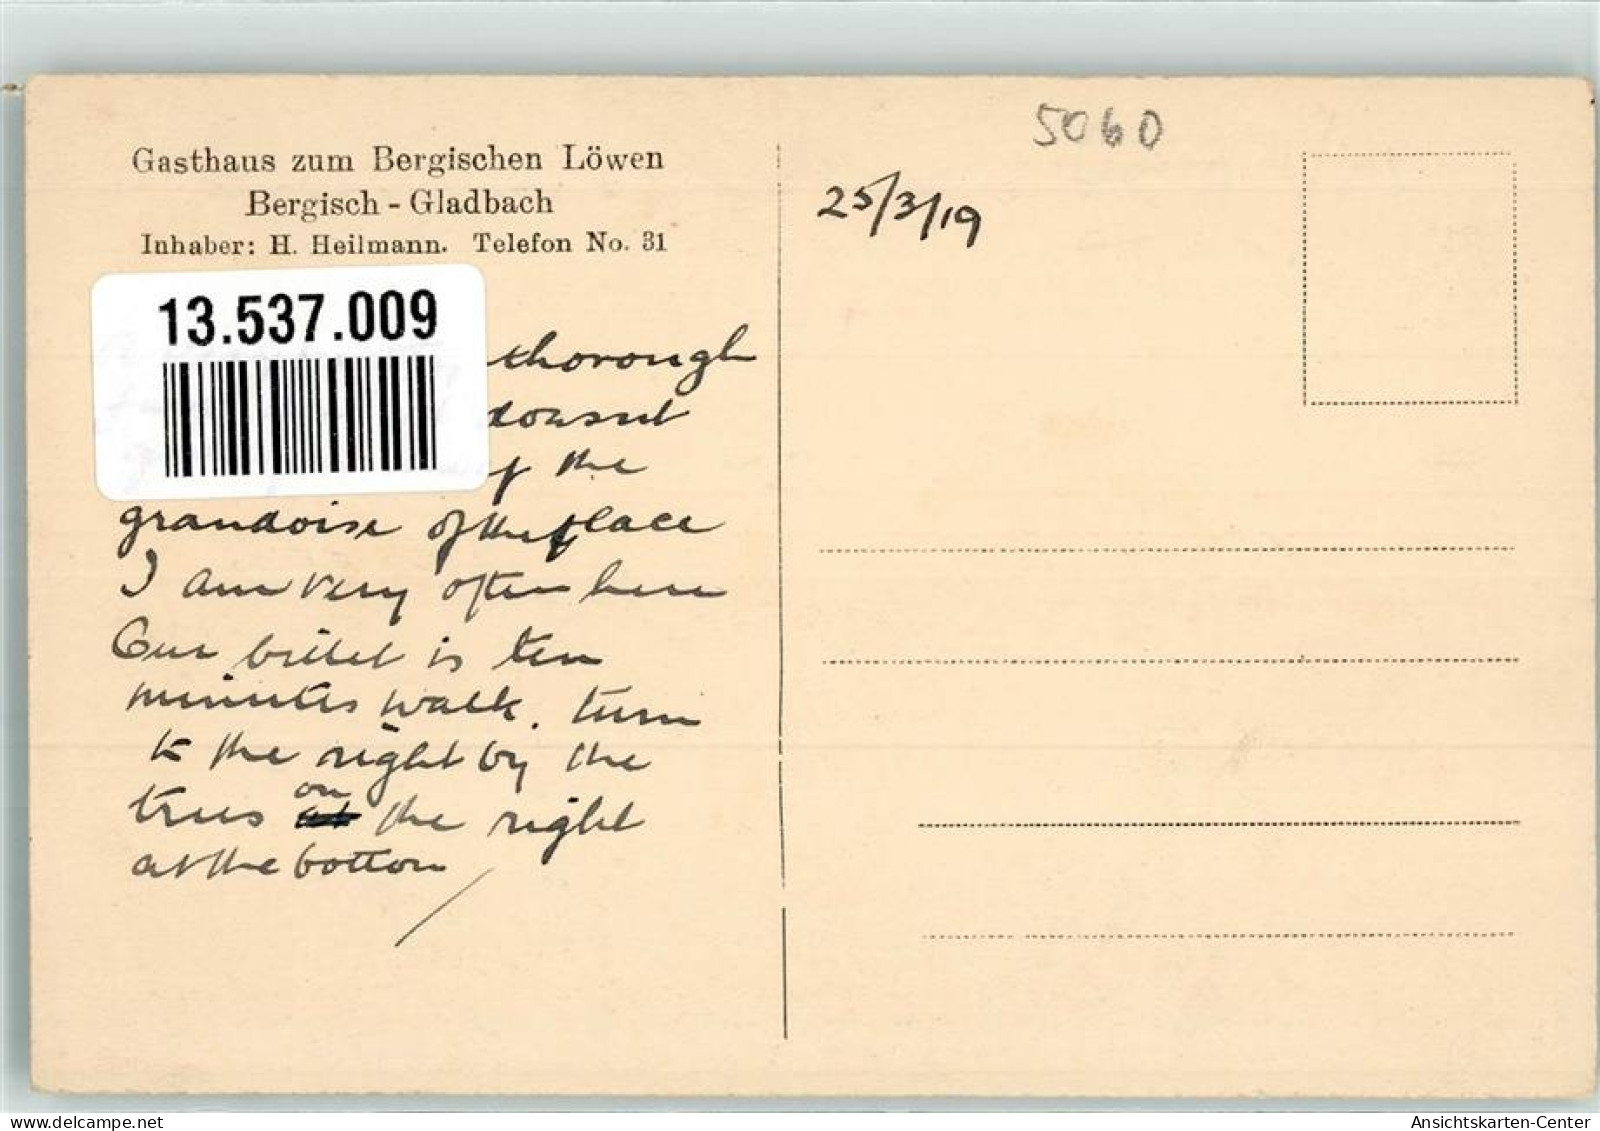 Gasthaus zum Bergischen Löwen
Bergisch - Gladbach
Inhaber: H. Heilmann. Telefon No. 31
13.537.009
thorough
of the
grandoise of the place
I am very often here
Our billet is ten
minutes walk. turn
to the right by the
trees on the right
at the bottom
5060
25/3/19
oldthing.de
Ansichtskarten-Center